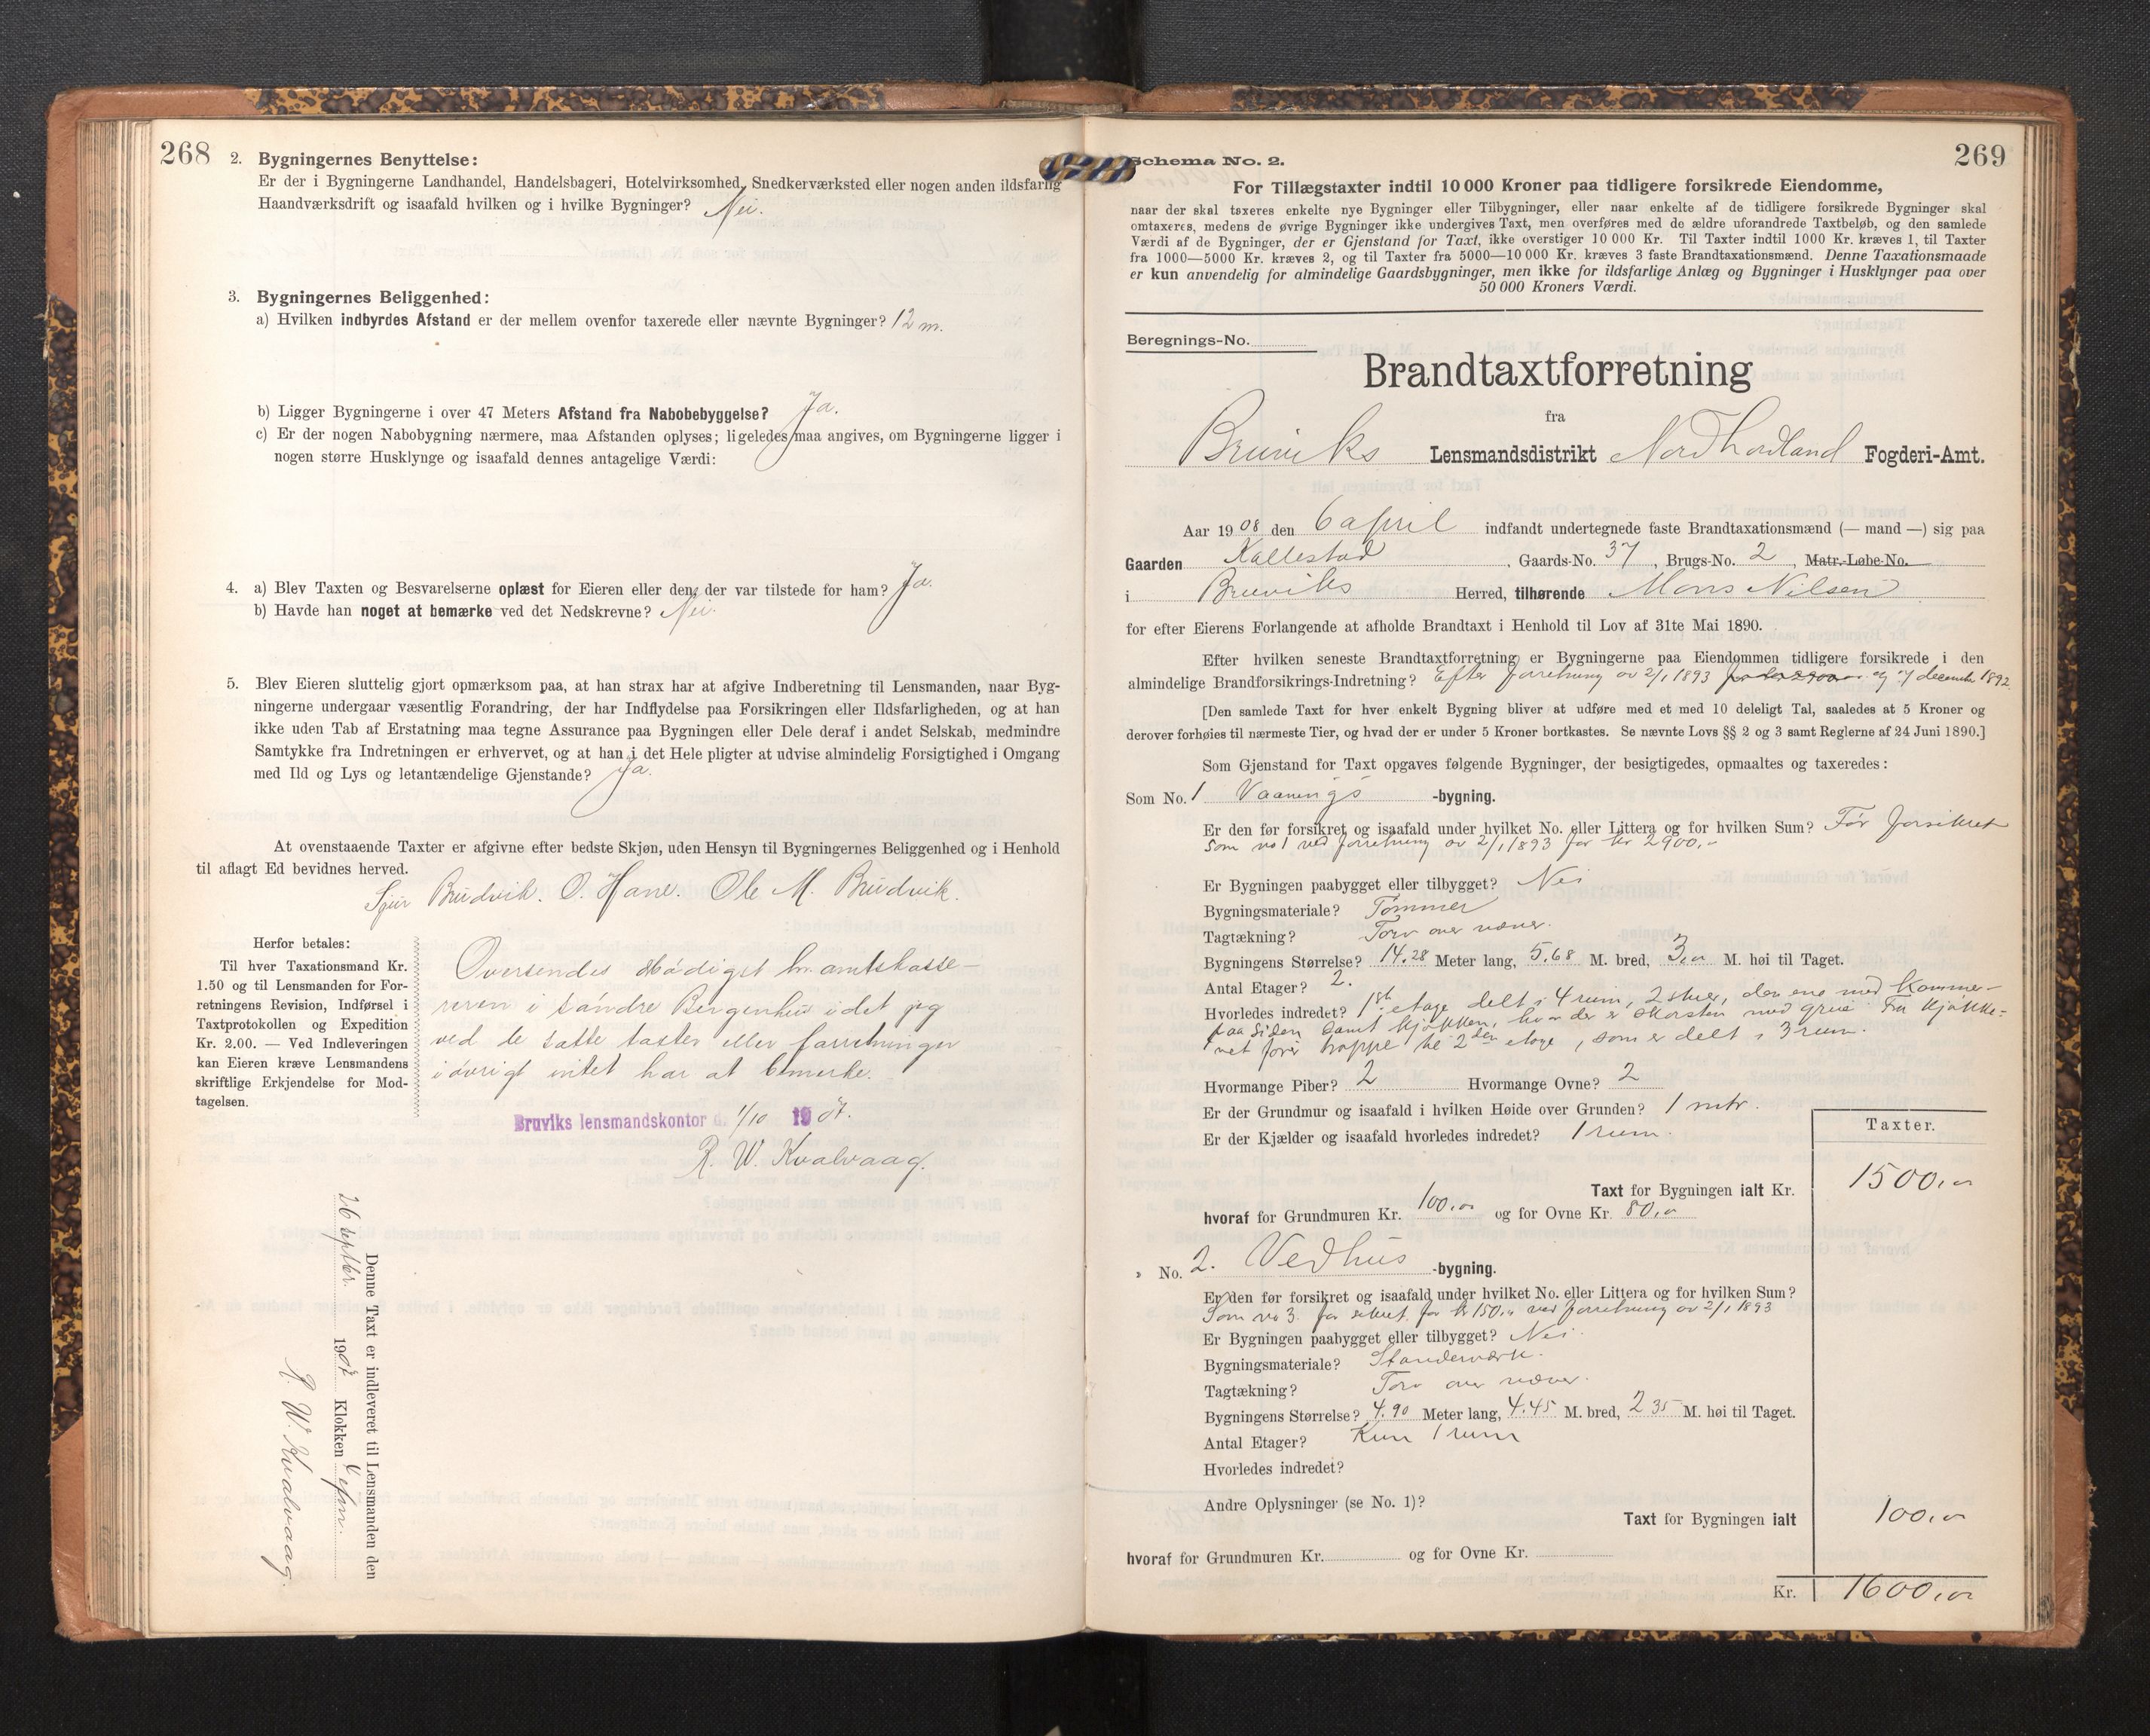 268
2. Bygningernes Benyttelse:
Er der i Bygningerne Landhandel, Handelsbageri, Hotelvirksomhed, Snedkerværksted eller nogen anden ildsfarlig
Haandværksdrift og isaafald hvilken og i hvilke Bygninger? Nei.
3. Bygningernes Beliggenhed:
a) Hvilken indbyrdes Afstand er der mellem ovenfor taxerede eller nævnte Bygninger? 12 m.
b) Ligger Bygningerne i over 47 Meters Afstand fra Nabobebyggelse? Ja.
c) Er der nogen Nabobygning nærmere, maa Afstanden oplyses; ligeledes maa angives, om Bygningerne ligger i
nogen større Husklynge og isaafald dennes antagelige Værdi:
4. a) Blev Taxten og Besvarelserne oplæst for Eieren eller den, der var tilstede for ham? Ja.
b) Havde han noget at bemærke ved det Nedskrevne? Nei.
5. Blev Eieren sluttelig gjort opmærksom paa, at han strax har at afgive Indberetning til Lensmanden, naar Byg-
ningerne undergaar væsentlig Forandring, der har Indflydelse paa Forsikringen eller Ildsfarligheden, og at han
ikke uden Tab af Erstatning maa tegne Assurance paa Bygningen eller Dele deraf i andet Selskab, medmindre
Samtykke fra Indretningen er erhvervet, og at han i det Hele pligter at udvise almindelig Forsigtighed i Omgang
med Ild og Lys og letantændelige Gjenstande? Ja.
At ovenstaaende Taxter er afgivne efter bedste Skjøn, uden Hensyn til Bygningernes Beliggenhed og i Henhold
til aflagt Ed bevidnes herved.
Brudvik. O. Hane. Ole M. Brudvik.
Herfor betales:
Til hver Taxationsmand Kr.
1.50 og til Lensmanden for For-
retningens Revision, Indførsel i
Taxtprotokollen og Expedition
Kr. 2.00. — Ved Indleveringen
kan Eieren kræve Lensmandens
skriftlige Erkjendelse for Mod-
tagelsen.
Oversendes hr. amtskasse-
reren i søndre Bergenhus idet jeg
ved de satte taxter eller forretninger
iøvrigt intet har at bemerke.
Bruviks lensmandskontor d. 1/10 1907.
R. W. Kvalvaag.
Denne Taxt er indleveret til Lensmanden den
26 septbr. 1907 Klokken efm.
R. W. Kvalvaag.
269
Schema No. 2.
For Tillægstaxter indtil 10 000 Kroner paa tidligere forsikrede Eiendomme,
naar der skal taxeres enkelte nye Bygninger eller Tilbygninger, eller naar enkelte af de tidligere forsikrede Bygninger skal
omtaxeres, medens de øvrige Bygninger ikke undergives Taxt, men overføres med de ældre uforandrede Taxtbeløb, og den samlede
Værdi af de Bygninger, der er Gjenstand for Taxt, ikke overstiger 10 000 Kr. Til Taxter indtil 1000 Kr. kræves 1, til Taxter
fra 1000—5000 Kr. kræves 2, og til Taxter fra 5000—10 000 Kr. kræves 3 faste Brandtaxationsmænd. Denne Taxationsmaade
er kun anvendelig for almindelige Gaardsbygninger, men ikke for ildsfarlige Anlæg og Bygninger i Husklynger paa over
50 000 Kroners Værdi.
Beregnings-No.
Brandtaxtforretning
fra
Bruviks Lensmandsdistrikt Nordhordland Fogderi-Amt.
Aar 1908 den 6 april indfandt undertegnede faste Brandtaxationsmænd (— mand —) sig paa
Gaarden Kallestad, Gaards-No. 37, Brugs-No. 2, Matr.-Løbe-No.
i Bruviks Herred, tilhørende Mons Nilsen
for efter Eierens Forlangende at afholde Brandtaxt i Henhold til Lov af 31te Mai 1890.
Efter hvilken seneste Brandtaxtforretning er Bygningerne paa Eiendommen tidligere forsikrede i den
almindelige Brandforsikrings-Indretning? Efter forretning av 2/1 1893 og december 1892
[Den samlede Taxt for hver enkelt Bygning bliver at udføre med et med 10 deleligt Tal, saaledes at 5 Kroner og
derover forhøies til nærmeste Tier, og hvad der er under 5 Kroner bortkastes. Se nævnte Lovs §§ 2 og 3 samt Reglerne af 24 Juni 1890.]
Som Gjenstand for Taxt opgaves følgende Bygninger, der besigtigedes, opmaaltes og taxeredes:
Som No. 1 Vaanings -bygning.
Er den før forsikret og isaafald under hvilket No. eller Littera og for hvilken Sum? Før forsikret
som no 1 ved forretning av 2/1 1893 for kr 2900,-
Er Bygningen paabygget eller tilbygget? Nei
Bygningsmateriale? Tømmer
Tagtækning? Torv over næver.
Bygningens Størrelse? 14.28 Meter lang, 5.68 M. bred, 3,00 M. høi til Taget.
Antal Etager? 2.
Hvorledes indredet? 1ste etage delt i 4 rum, 2 stuer, den ene med kammer
paa siden samt kjøkken, hvor der er skorsten med grue. Fra kjøkke-
net fører trappe til 2den etage, som er delt i 3 rum.
Hvormange Piber? 2 Hvormange Ovne? 2
Er der Grundmur og isaafald i hvilken Høide over Grunden? 1 mtr.
Er der Kjælder og isaafald hvorledes indredet? 1 rum.
Taxter.
Taxt for Bygningen ialt Kr. 1500,00
hvoraf for Grundmuren Kr. 100,00 og for Ovne Kr. 80,00
» No. 2. Vedhus -bygning.
Er den før forsikret og isaafald under hvilket No. eller Littera og for hvilken Sum?
Som no 3. for sikret for kr 150,00 ved forretning av 2/1 1893
Er Bygningen paabygget eller tilbygget? Nei.
Bygningsmateriale? Standerværk.
Tagtækning? Torv over næver.
Bygningens Størrelse? 4.90 Meter lang, 4.45 M. bred, 2 35 M. høi til Taget.
Antal Etager? Kun 1 rum
Hvorledes indredet?
Andre Oplysninger (se No. 1)?
Taxt for Bygningen ialt 100,00
hvoraf for Grundmuren Kr. og for Ovne Kr.
Kr. 1600,00